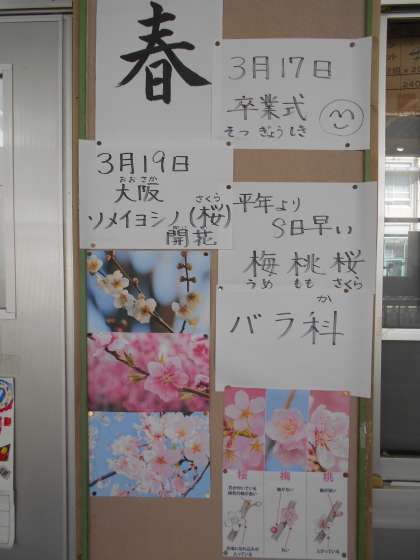 春
3月17日
卒業式
そつ ぎょう しき
3月19日
おお さか
大阪
さくら
ソメイヨシノ(桜)
開花
平年より
8日早い
梅 桃 桜
うめ もも さくら
か
バラ科
桜 梅 桃